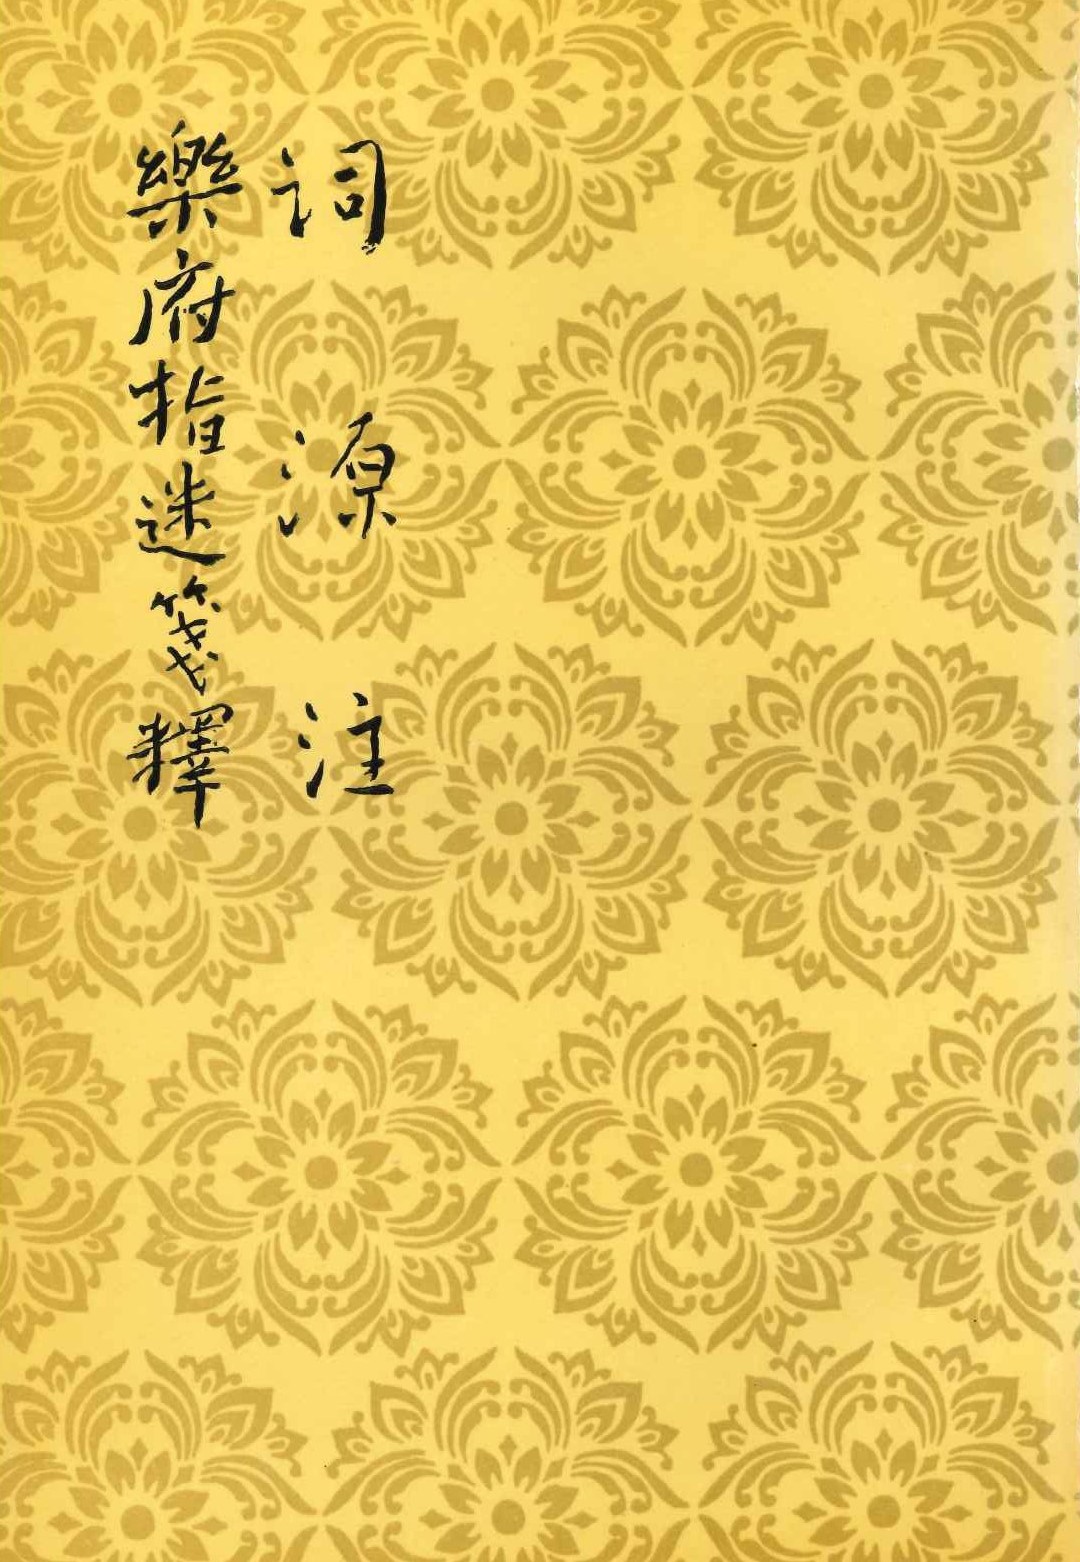 詞源注
樂府指迷箋釋